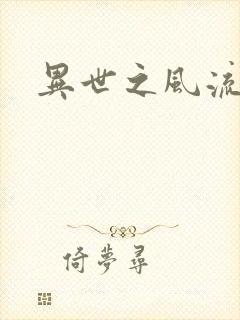 異世之風流
倚夢尋